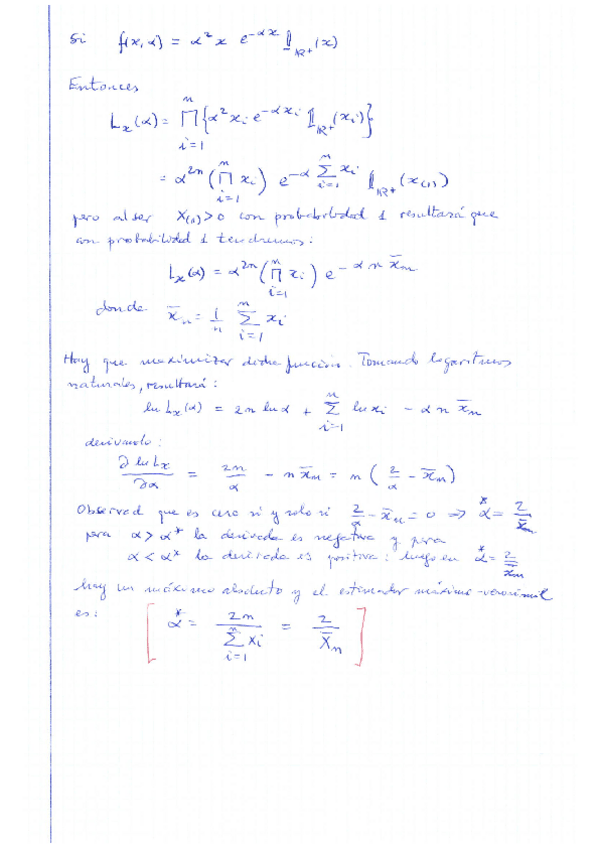 Si f(x,α) = α² x e^{-αx} 𝟙_{ℝ⁺}(x)
Entonces
L_x(α) = ∏_{i=1}^{n} {α² x_i e^{-αx_i} 𝟙_{ℝ⁺}(x_i)}
= α^{2n} (∏_{i=1}^{n} x_i) e^{-α ∑_{i=1}^{n} x_i} 𝟙_{ℝ⁺}(x_{(1)})
pero al ser X_{(1)} > 0 con probabilidad 1 resultará que
con probabilidad 1 tendremos:
L_x(α) = α^{2n} (∏_{i=1}^{n} x_i) e^{-α n x̄_n}
donde x̄_n = 1/n ∑_{i=1}^{n} x_i
Hay que maximizar dicha función. Tomando logaritmos
naturales, resultará:
ln L_x(α) = 2n ln α + ∑_{i=1}^{n} ln x_i - α n x̄_n
derivando:
∂ ln L_x / ∂α = 2n/α - n x̄_n = n (2/α - x̄_n)
Observad que es cero si y solo si 2/α - x̄_n = 0 ⇒ α* = 2/x̄_n
para α > α* la derivada es negativa y para
α < α* la derivada es positiva: luego en α* = 2/x̄_n
hay un máximo absoluto y el estimador máximo-verosímil
es: [ α* = 2n / ∑_{i=1}^{n} X_i = 2 / X̄_n ]